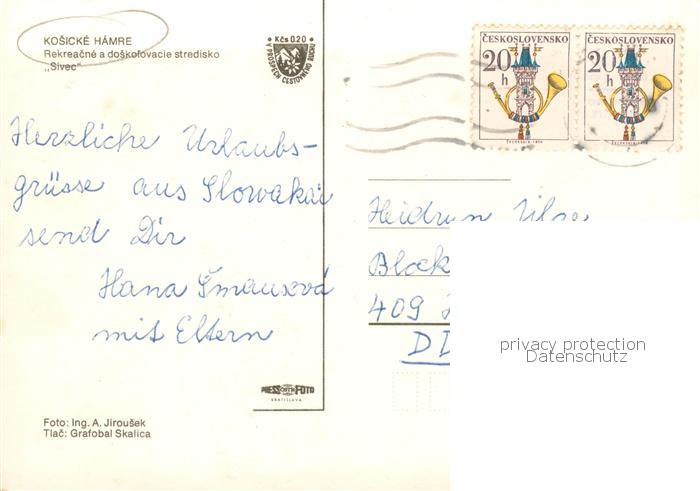 KOŠICKÉ HÁMRE
Rekreačné a doškoľovacie stredisko
„Sivec“
Kčs 0.20
V PROSPECH CESTOVNÉHO RUCHU
ČESKOSLOVENSKO
20 h
ČESKOSLOVENSKO
20 h
Herzliche Urlaubs-
grüsse aus Slowakai
send Dir
Hana Šmausová
mit Eltern
Heidrun
Block
409
DD
privacy protection
Datenschutz
PRESSFOTO
BRATISLAVA
Foto: Ing. A. Jiroušek
Tlač: Grafobal Skalica